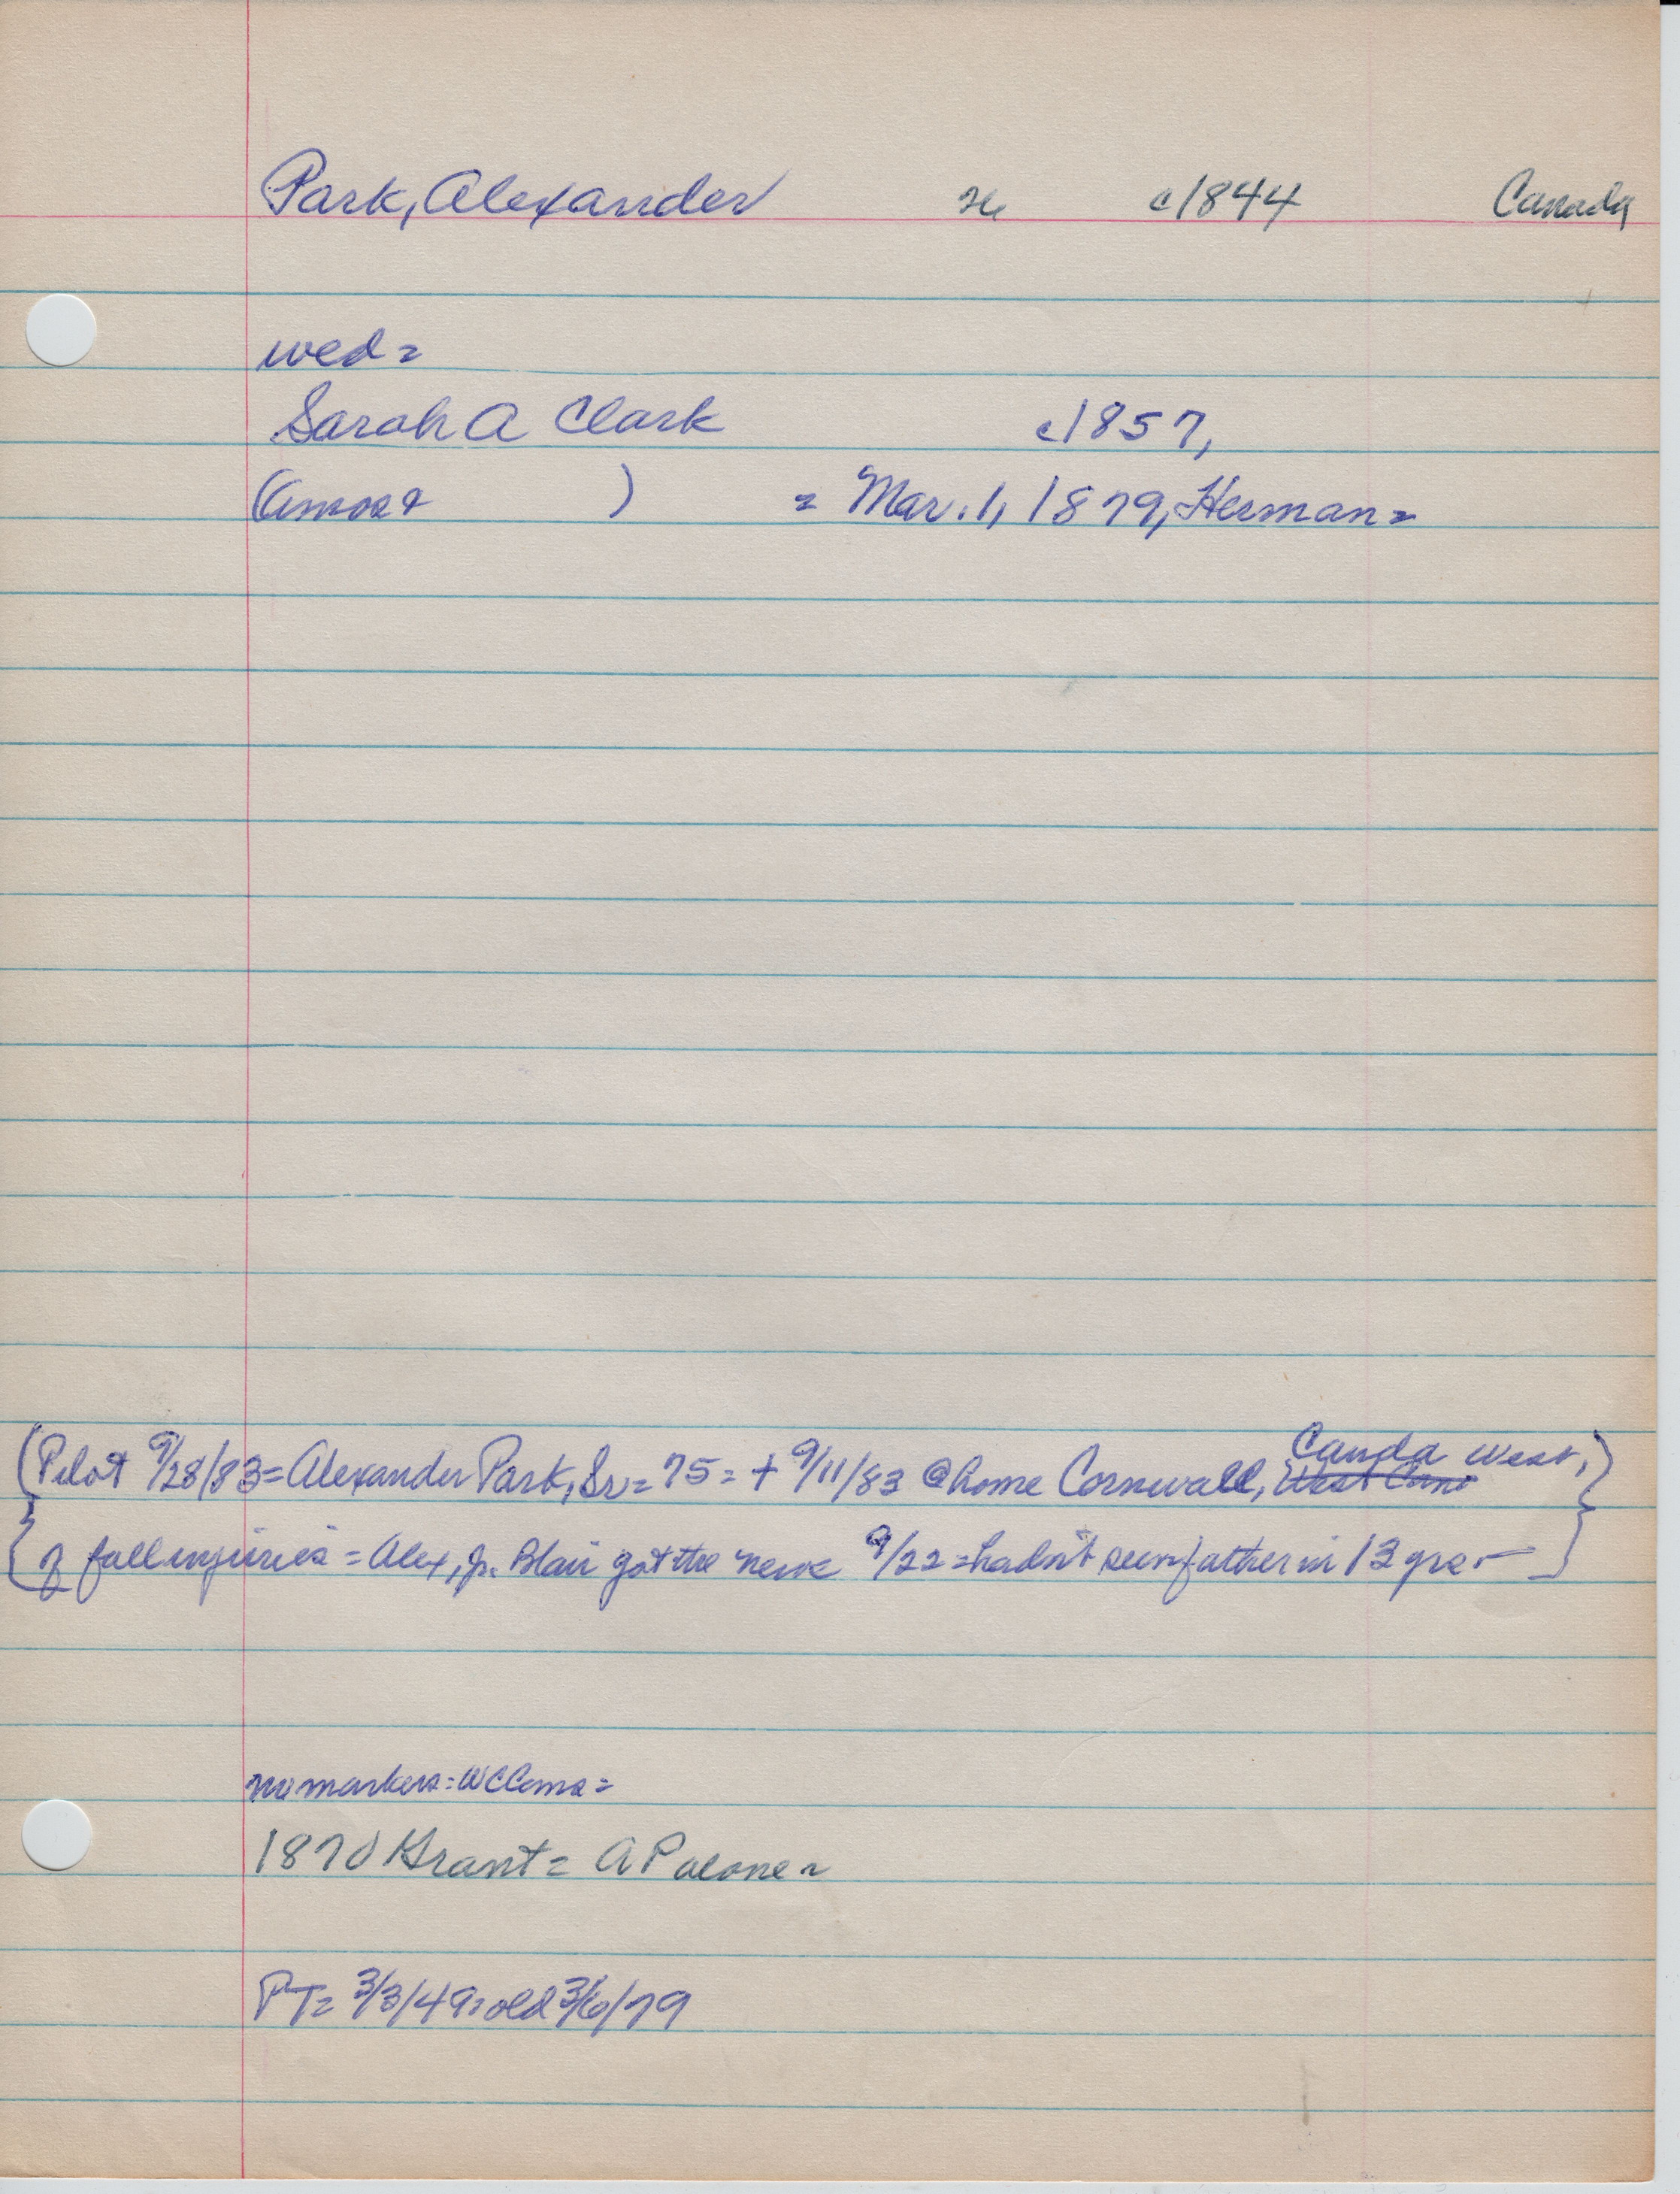 Park, Alexander c1844 Canada
wed=
Sarah A Clark c1857,
(Amos & ) = Mar. 1, 1879, Herman=
(Pilot 9/28/83=Alexander Park, Sr=75=+ 9/11/83 @home Cornwall, Canda West,)
of fall injuries=Alex, jr. Blair got the news 9/22=hadn't seen father in 13 yrs.
no markers=WCCems=
1870 Grant= AP alone=
PT= 3/3/49=old 3/6/79